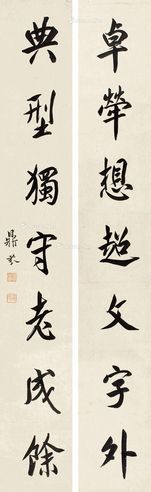 卓犖想超文字外
典型獨守老成餘
鼎芬